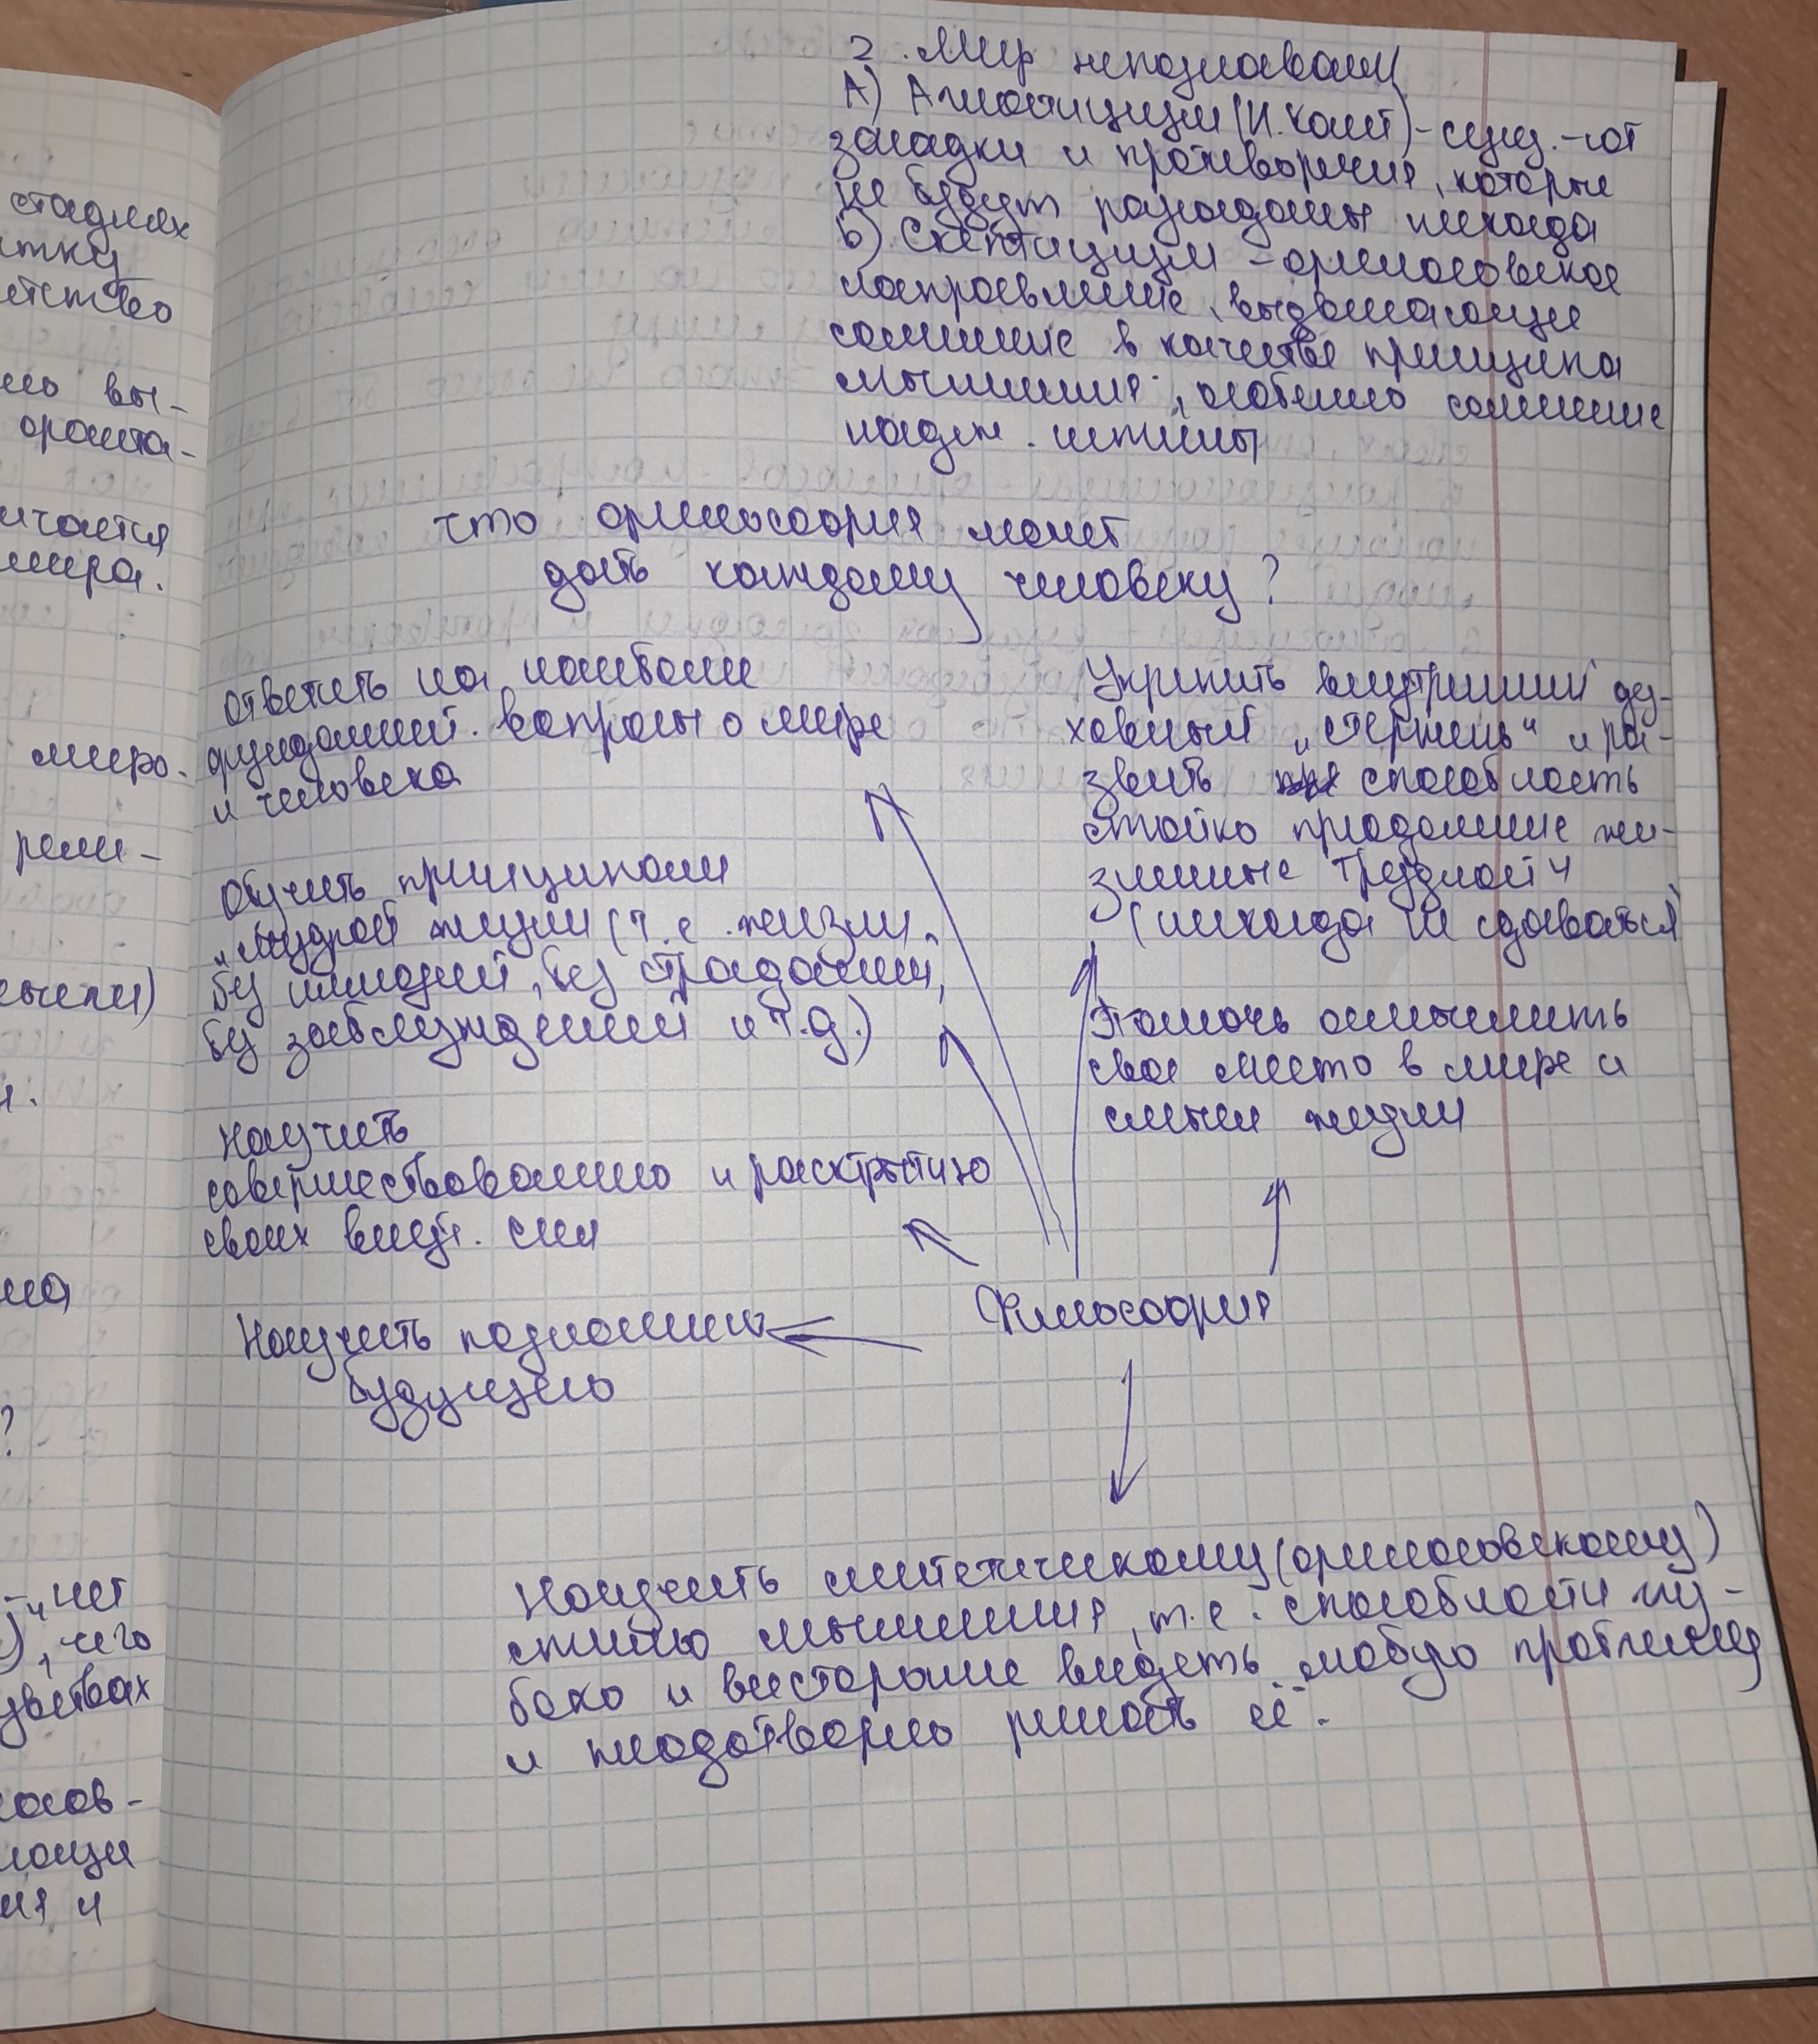 2. Мир непознаваем
А) Агностицизм (И. Кант) - сущ. -ют
загадки и противоречия, которые
не будут разгаданы никогда
b) Скептицизм - философское
направление, выдвигающее
сомнение в качестве принципа
мышления, особенно сомнение
надеж. истины
что философия может
дать каждому человеку?
ответить на наиболее
фундамент. вопросы о мире
и человека
Обучить принципам
„мудрой жизни (т.е. жизни
без иллюзий, без страданий,
без заблуждений и т.д.)
Научить
совершенствованию и раскрытию
своих внут. сил
Научить познанию
будущего
Укрепить внутренний ду-
ховный „стержень“ и ра-
звить способность
стойко преодоление жи-
зненные трудности
(никогда не сдаваться)
Помочь осмыслить
свое место в мире и
смысл жизни
Философия
Научить синтетическому (философскому)
стилю мышления, т.е. способности глу-
боко и всесторонне видеть любую проблему
и плодотворно решать её.
стадиях
етство
но вы-
фанта-
ичается
мира.
миро.
рели-
?
нет
, чего
увствах
лософ-
ающи
ия и